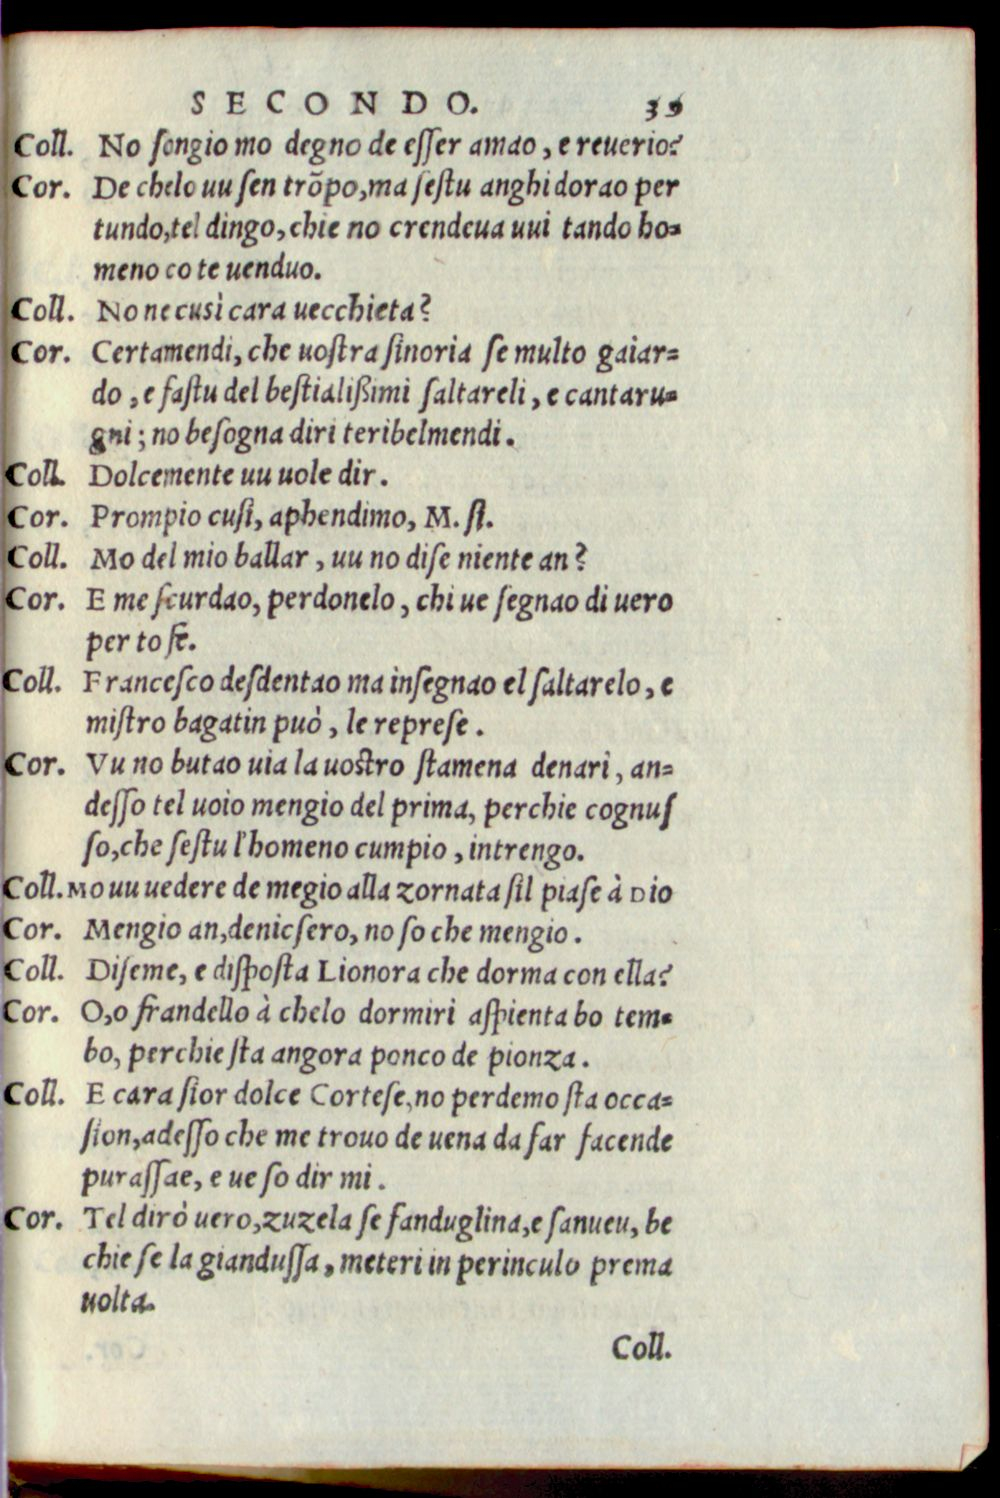 SECONDO. 39
Coll. No songio mo degno de esser amao, e reuerio?
Cor. De chelo uu sen trõpo, ma sestu anghi dorao per
tundo, tel dingo, chie no crendeua uui tando ho-
meno co te uenduo.
Coll. No ne cusì cara uecchieta?
Cor. Certamendi, che uostra sinoria se multo gaiar-
do, e fastu del bestialißimi saltareli, e cantaru-
gni; no besogna diri teribelmendi.
Coll. Dolcemente uu uole dir.
Cor. Prompio cusì, aphendimo, M. sì.
Coll. Mo del mio ballar, uu no dise niente an?
Cor. E me scurdao, perdonelo, chi ue segnao di uero
per to fè.
Coll. Francesco desdentao ma insegnao el saltarelo, e
mistro bagatin può, le represe.
Cor. Vu no butao uia la uostro stamena denari, an-
desso tel uoio mengio del prima, perchie cognus
so, che sestu l'homeno cumpio, intrengo.
Coll. Mo uu uedere de megio alla zornata sil piase à Dio
Cor. Mengio an, denicsero, no so che mengio.
Coll. Diseme, e disposta Lionora che dorma con ella?
Cor. O, o frandello à chelo dormiri aspienta bo tem-
bo, perchie sta angora ponco de pionza.
Coll. E cara sior dolce Cortese, no perdemo sta occa-
sion, adesso che me trouo de uena da far facende
purassae, e ue so dir mi.
Cor. Tel dirò uero, zuzela se fanduglina, e sanueu, be
chie se la giandussa, meteri in perinculo prema
uolta.
Coll.